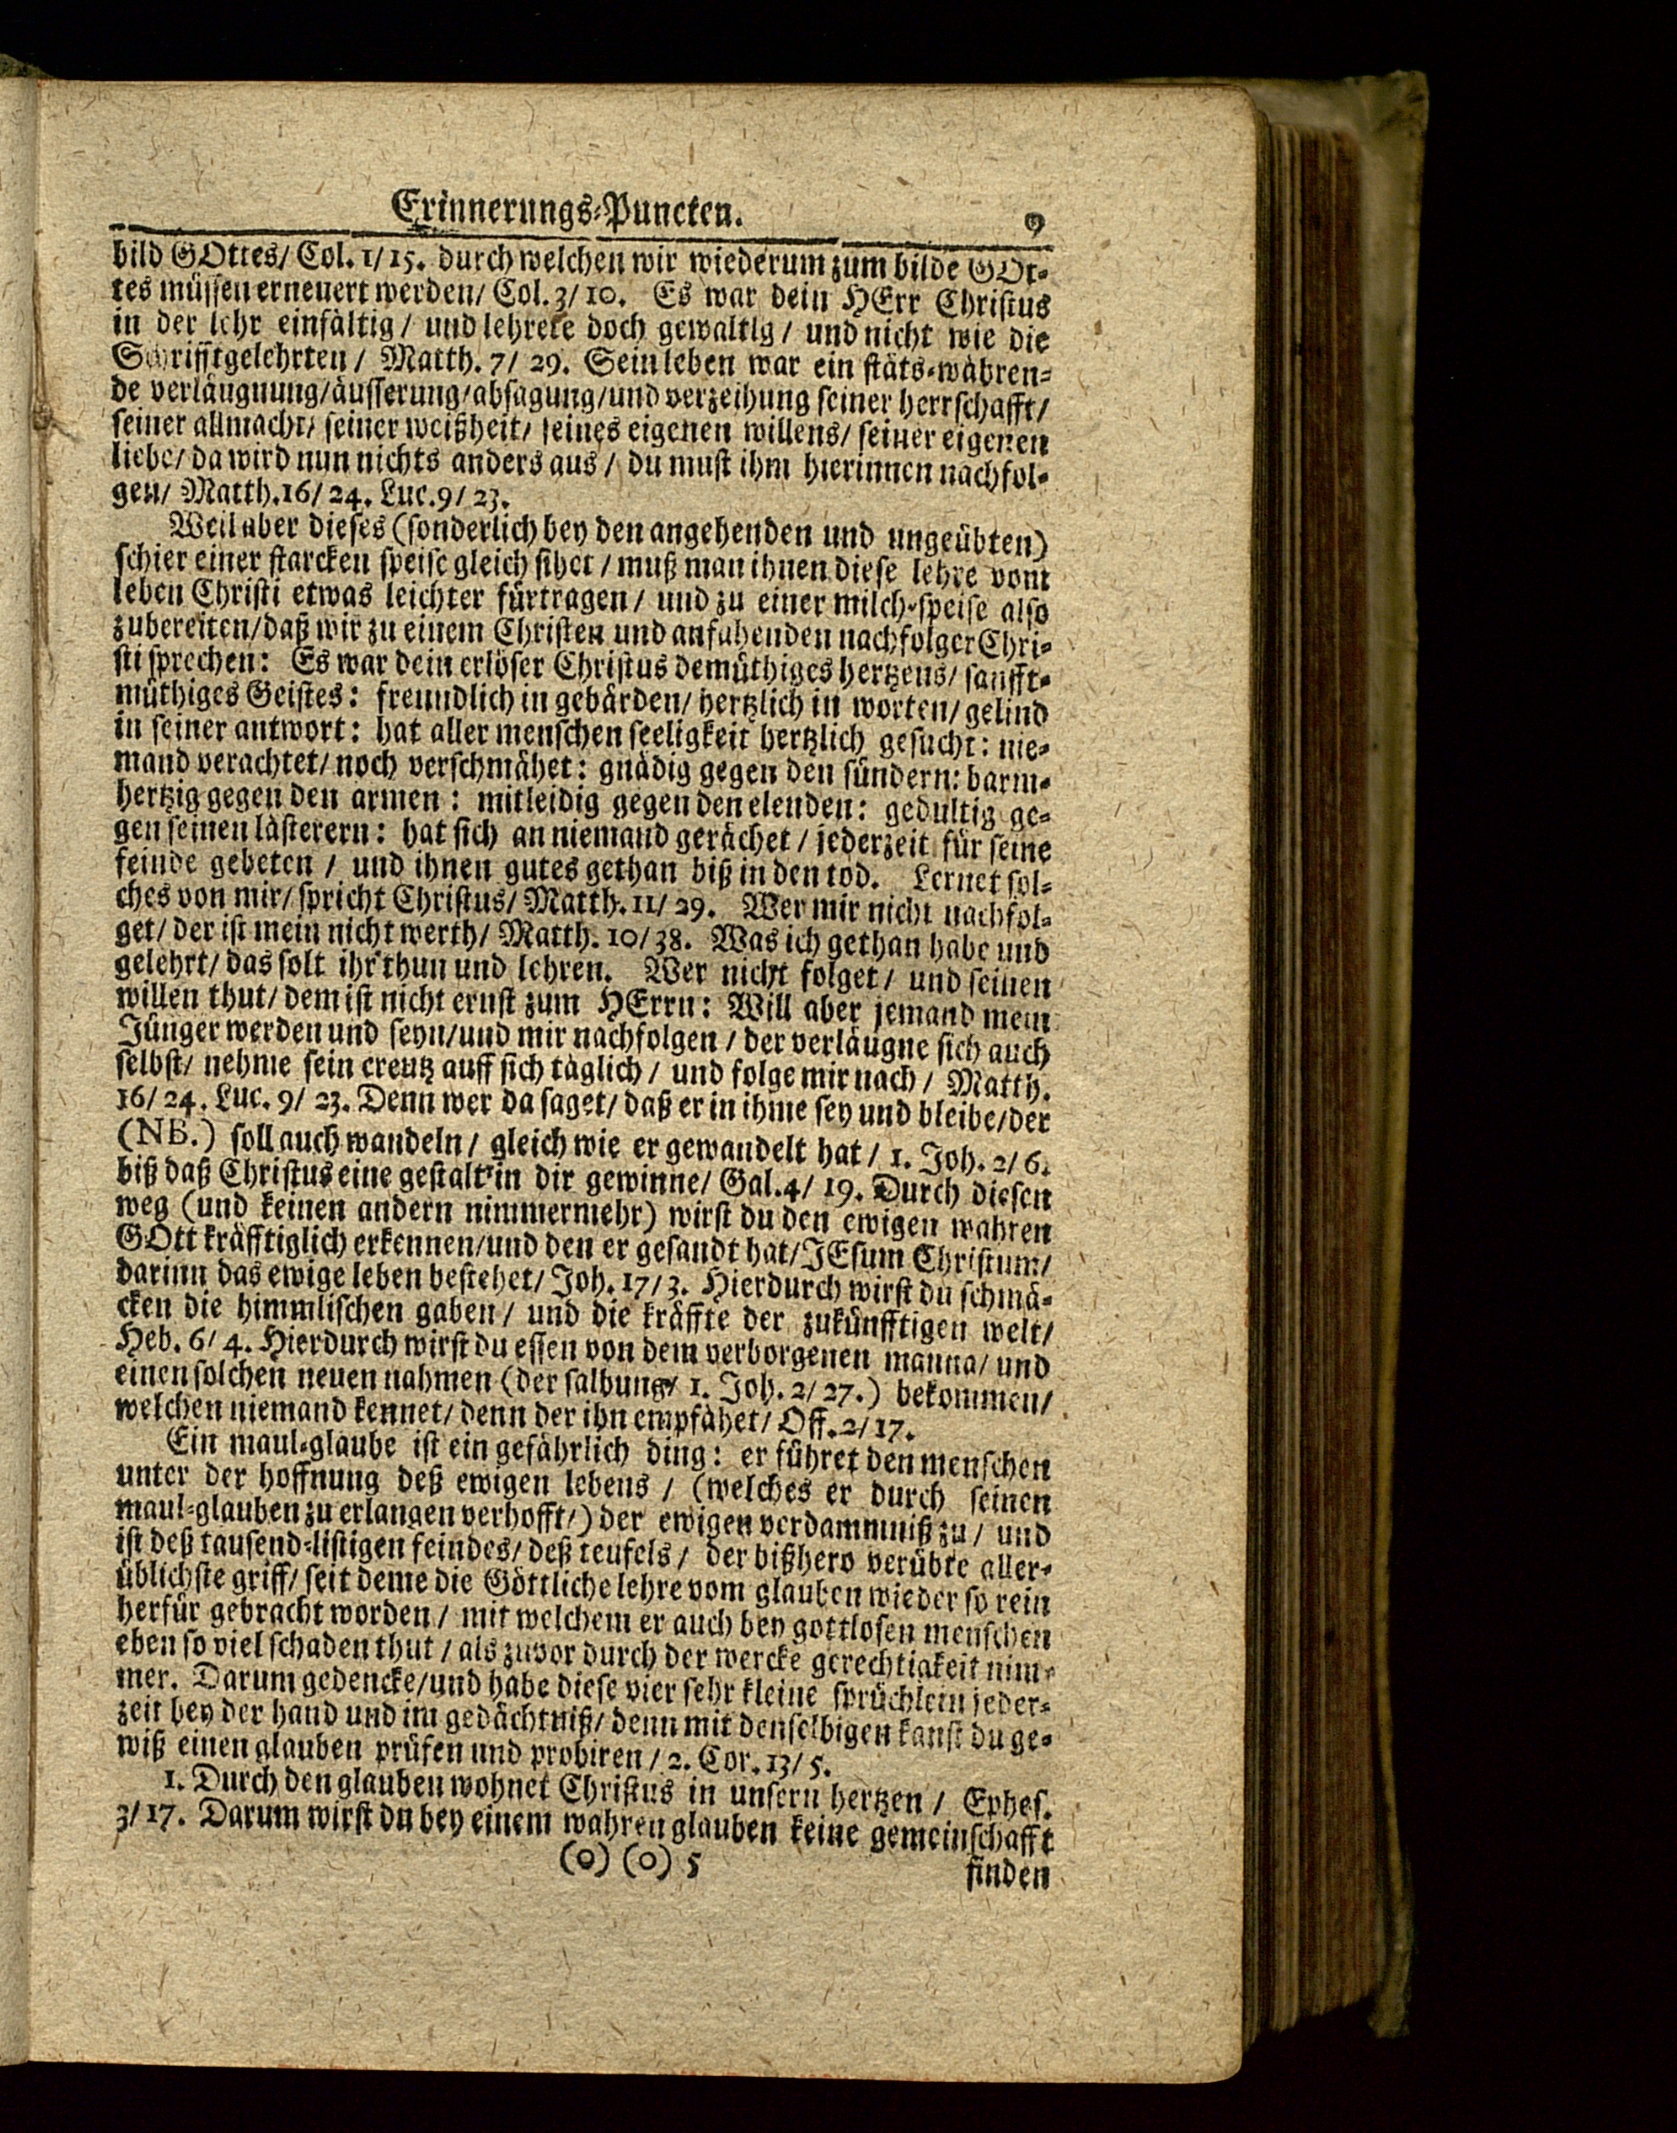 Erinnerungs-Puncten. 9
bild GOttes/ Col. 1/15. durch welchen wir wiederum zum bilde GOt-
tes müssen erneuert werden/ Col. 3/10. Es war dein HErr Christus
in der lehr einfältig/ und lehrete doch gewaltig/ und nicht wie die
Schrifftgelehrten/ Matth. 7/ 29. Sein leben war ein stäts-währen-
de verläugnung/äusserung/absagung/und verzeihung seiner herrschafft/
seiner allmacht/ seiner weißheit/ seines eigenen willens/ seiner eigenen
liebe/ da wird nun nichts anders aus/ du must ihm hierinnen nachfol-
gen/ Matth. 16/ 24. Luc. 9/ 23.
Weil aber dieses (sonderlich bey den angehenden und ungeübten)
schier einer starcken speise gleich sihet/ muß man ihnen diese lehre vom
leben Christi etwas leichter fürtragen/ und zu einer milch-speise also
zubereiten/daß wir zu einem Christen und anfahenden nachfolger Chri-
sti sprechen: Es war dein erlöser Christus demüthiges hertzens/ sanfft-
müthiges Geistes: freundlich in gebärden/ hertzlich in worten/ gelind
in seiner antwort: hat aller menschen seeligkeit hertzlich gesucht: nie-
mand verachtet/ noch verschmähet: gnädig gegen den sündern: barm-
hertzig gegen den armen: mitleidig gegen den elenden: gedultig ge-
gen seinen lästerern: hat sich an niemand gerächet/ jederzeit für seine
feinde gebeten/ und ihnen gutes gethan biß in den tod. Lernet sol-
ches von mir/ spricht Christus/ Matth. 11/ 29. Wer mir nicht nachfol-
get/ der ist mein nicht werth/ Matth. 10/38. Was ich gethan habe und
gelehrt/ das solt ihr thun und lehren. Wer nicht folget/ und seinen
willen thut/ dem ist nicht ernst zum HErrn: Will aber jemand mein
Jünger werden und seyn/und mir nachfolgen/ der verläugne sich auch
selbst/ nehme sein creutz auff sich täglich/ und folge mir nach/ Matth.
16/ 24. Luc. 9/ 23. Denn wer da saget/ daß er in ihme sey und bleibe/der
(NB.) soll auch wandeln/ gleich wie er gewandelt hat/ 1. Joh. 2/ 6.
biß daß Christus eine gestalt in dir gewinne/ Gal. 4/ 19. Durch diesen
weg (und keinen andern nimmermehr) wirst du den ewigen wahren
GOtt kräfftiglich erkennen/und den er gesandt hat/JEsum Christum/
darinn das ewige leben bestehet/ Joh. 17/3. Hierdurch wirst du schmä-
cken die himmlischen gaben/ und die kräffte der zukünfftigen welt/
Heb. 6/ 4. Hierdurch wirst du essen von dem verborgenen manna/ und
einen solchen neuen nahmen (der salbung/ 1. Joh. 2/27.) bekommen/
welchen niemand kennet/ denn der ihn empfähet/ Off. 2/17.
Ein maul-glaube ist ein gefährlich ding: er führet den menschen
unter der hoffnung deß ewigen lebens/ (welches er durch seinen
maul-glauben zu erlangen verhofft/) der ewigen verdammniß zu/ und
ist deß tausend-listigen feindes/ deß teufels/ der bißhero verübte aller-
üblichste griff/ seit deme die Göttliche lehre vom glauben wieder so rein
herfür gebracht worden/ mit welchem er auch bey gottlosen menschen
eben so viel schaden thut/ als zuvor durch der wercke gerechtigkeit nim-
mer. Darum gedencke/und habe diese vier sehr kleine sprüchlein jeder-
zeit bey der hand und im gedächtniß/ denn mit denselbigen kanst du ge-
wiß einen glauben prüfen und probiren/ 2. Cor. 13/ 5.
1. Durch den glauben wohnet Christus in unsern hertzen/ Ephes.
3/17. Darum wirst du bey einem wahren glauben keine gemeinschafft
(o) (o) 5 finden